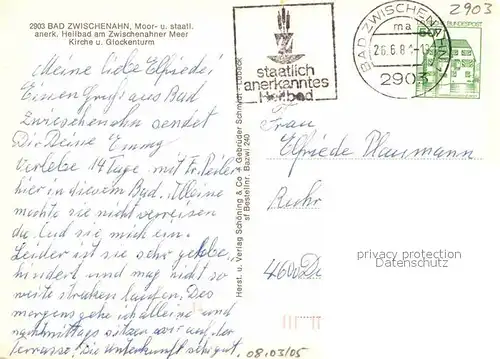 2903
2903 BAD ZWISCHENAHN, Moor- u. staatl.
anerk. Heilbad am Zwischenahner Meer
Kirche u. Glockenturm
Meine liebe Elfriede!
Einen Gruß aus Bad
Zwischenahn sendet
Dir Deine Emmy
Verlebe 14 Tage mit Fr.
hier in diesem Bad. Alleine
mochte sie nicht verreisen
da lud sie mich ein.
Leider ist sie sehr gehbe,
hindert und mag nicht so
weite strecken laufen. Des
morgens gehe ich alleine und
nachmittags sitzen wir auf der
Terrasse! Die Unterkunft sehr gut,
08.03/05
Herst. u. Verlag Schöning & Co + Gebrüder Schmidt, Lübeck
Bestellnr. Bazwi 240
staatlich
anerkanntes
Heilbad
BAD ZWISCHENAHN
ma
26.6.8
2903
BUNDESPOST
Frau
Elfriede
Ruhr
4600
privacy protection
Datenschutz